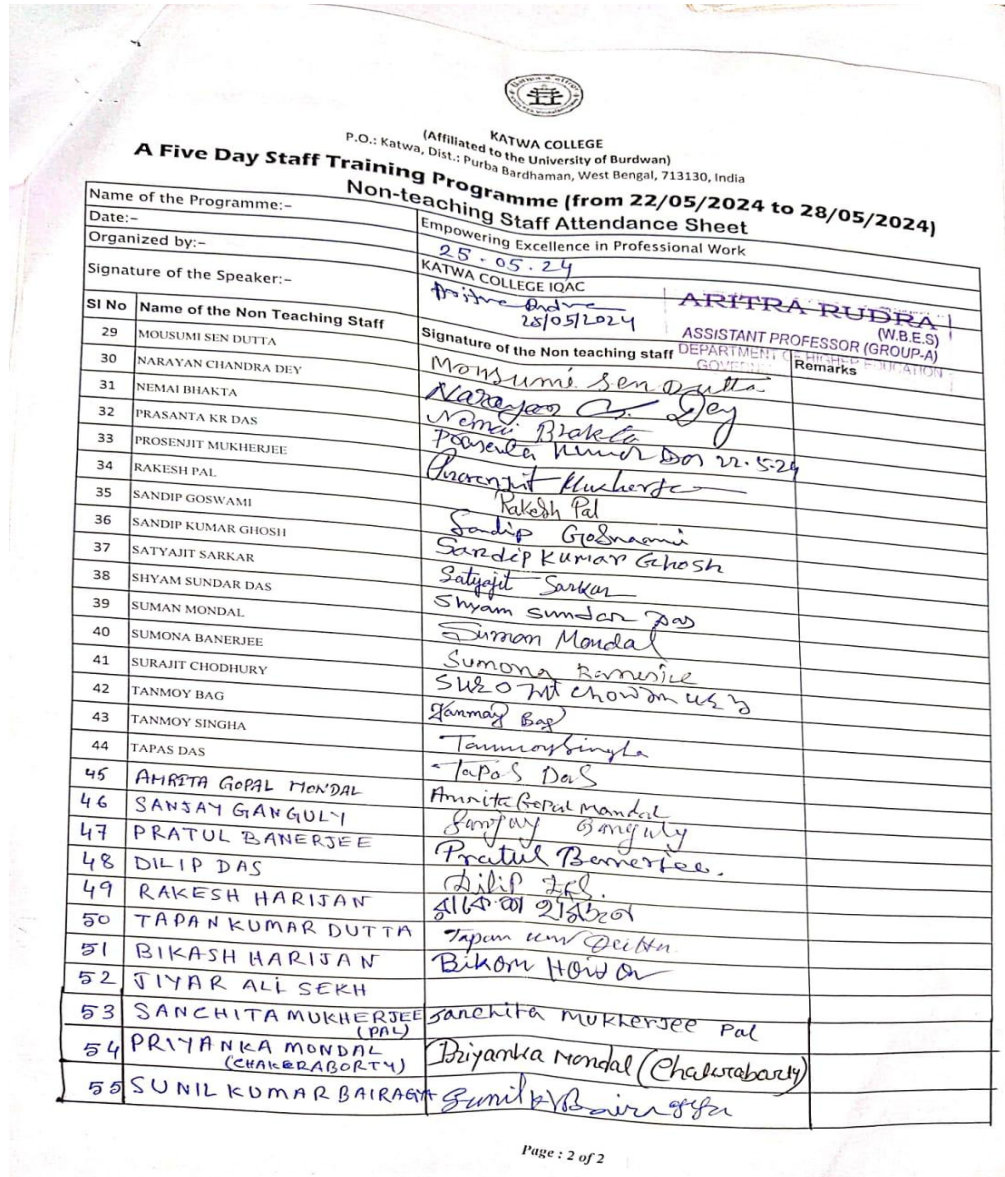 KATWA COLLEGE
(Affiliated to the University of Burdwan)
P.O.: Katwa, Dist.: Purba Bardhaman, West Bengal, 713130, India
A Five Day Staff Training Programme (from 22/05/2024 to 28/05/2024)
Non-teaching Staff Attendance Sheet
Name of the Programme:- Empowering Excellence in Professional Work
Date:- 25.05.24
Organized by:- KATWA COLLEGE IQAC
Signature of the Speaker:-
25/05/2024
ARITRA RUDRA
(W.B.E.S)
ASSISTANT PROFESSOR (GROUP-A)
DEPARTMENT OF HIGHER EDUCATION
Sl No Name of the Non Teaching Staff Signature of the Non teaching staff Remarks
29 MOUSUMI SEN DUTTA Mousumi Sen Dutta
30 NARAYAN CHANDRA DEY Narayan Ch. Dey
31 NEMAI BHAKTA Nemai Bhakta
32 PRASANTA KR DAS Prasanta Kumar Das 22.5.24
33 PROSENJIT MUKHERJEE Prosenjit Mukherjee
34 RAKESH PAL Rakesh Pal
35 SANDIP GOSWAMI Sandip Goswami
36 SANDIP KUMAR GHOSH Sandip Kumar Ghosh
37 SATYAJIT SARKAR Satyajit Sarkar
38 SHYAM SUNDAR DAS Shyam Sundar Das
39 SUMAN MONDAL Suman Mondal
40 SUMONA BANERJEE Sumona Banerjee
41 SURAJIT CHODHURY
42 TANMOY BAG Tanmay Bag
43 TANMOY SINGHA Tanmoy Singha
44 TAPAS DAS Tapas Das
45 AMRITA GOPAL MONDAL Amrita Gopal Mandal
46 SANJAY GANGULY Sanjay Ganguly
47 PRATUL BANERJEE Pratul Banerjee.
48 DILIP DAS Dilip
49 RAKESH HARIJAN
50 TAPAN KUMAR DUTTA Tapan
51 BIKASH HARIJAN
52 JIYAR ALI SEKH
53 SANCHITA MUKHERJEE (PAL) Sanchita Mukherjee Pal
54 PRIYANKA MONDAL (CHAKERABORTY) Priyanka Mondal (Chakraborty)
55 SUNIL KUMAR BAIRAGYA Sunil
Page : 2 of 2